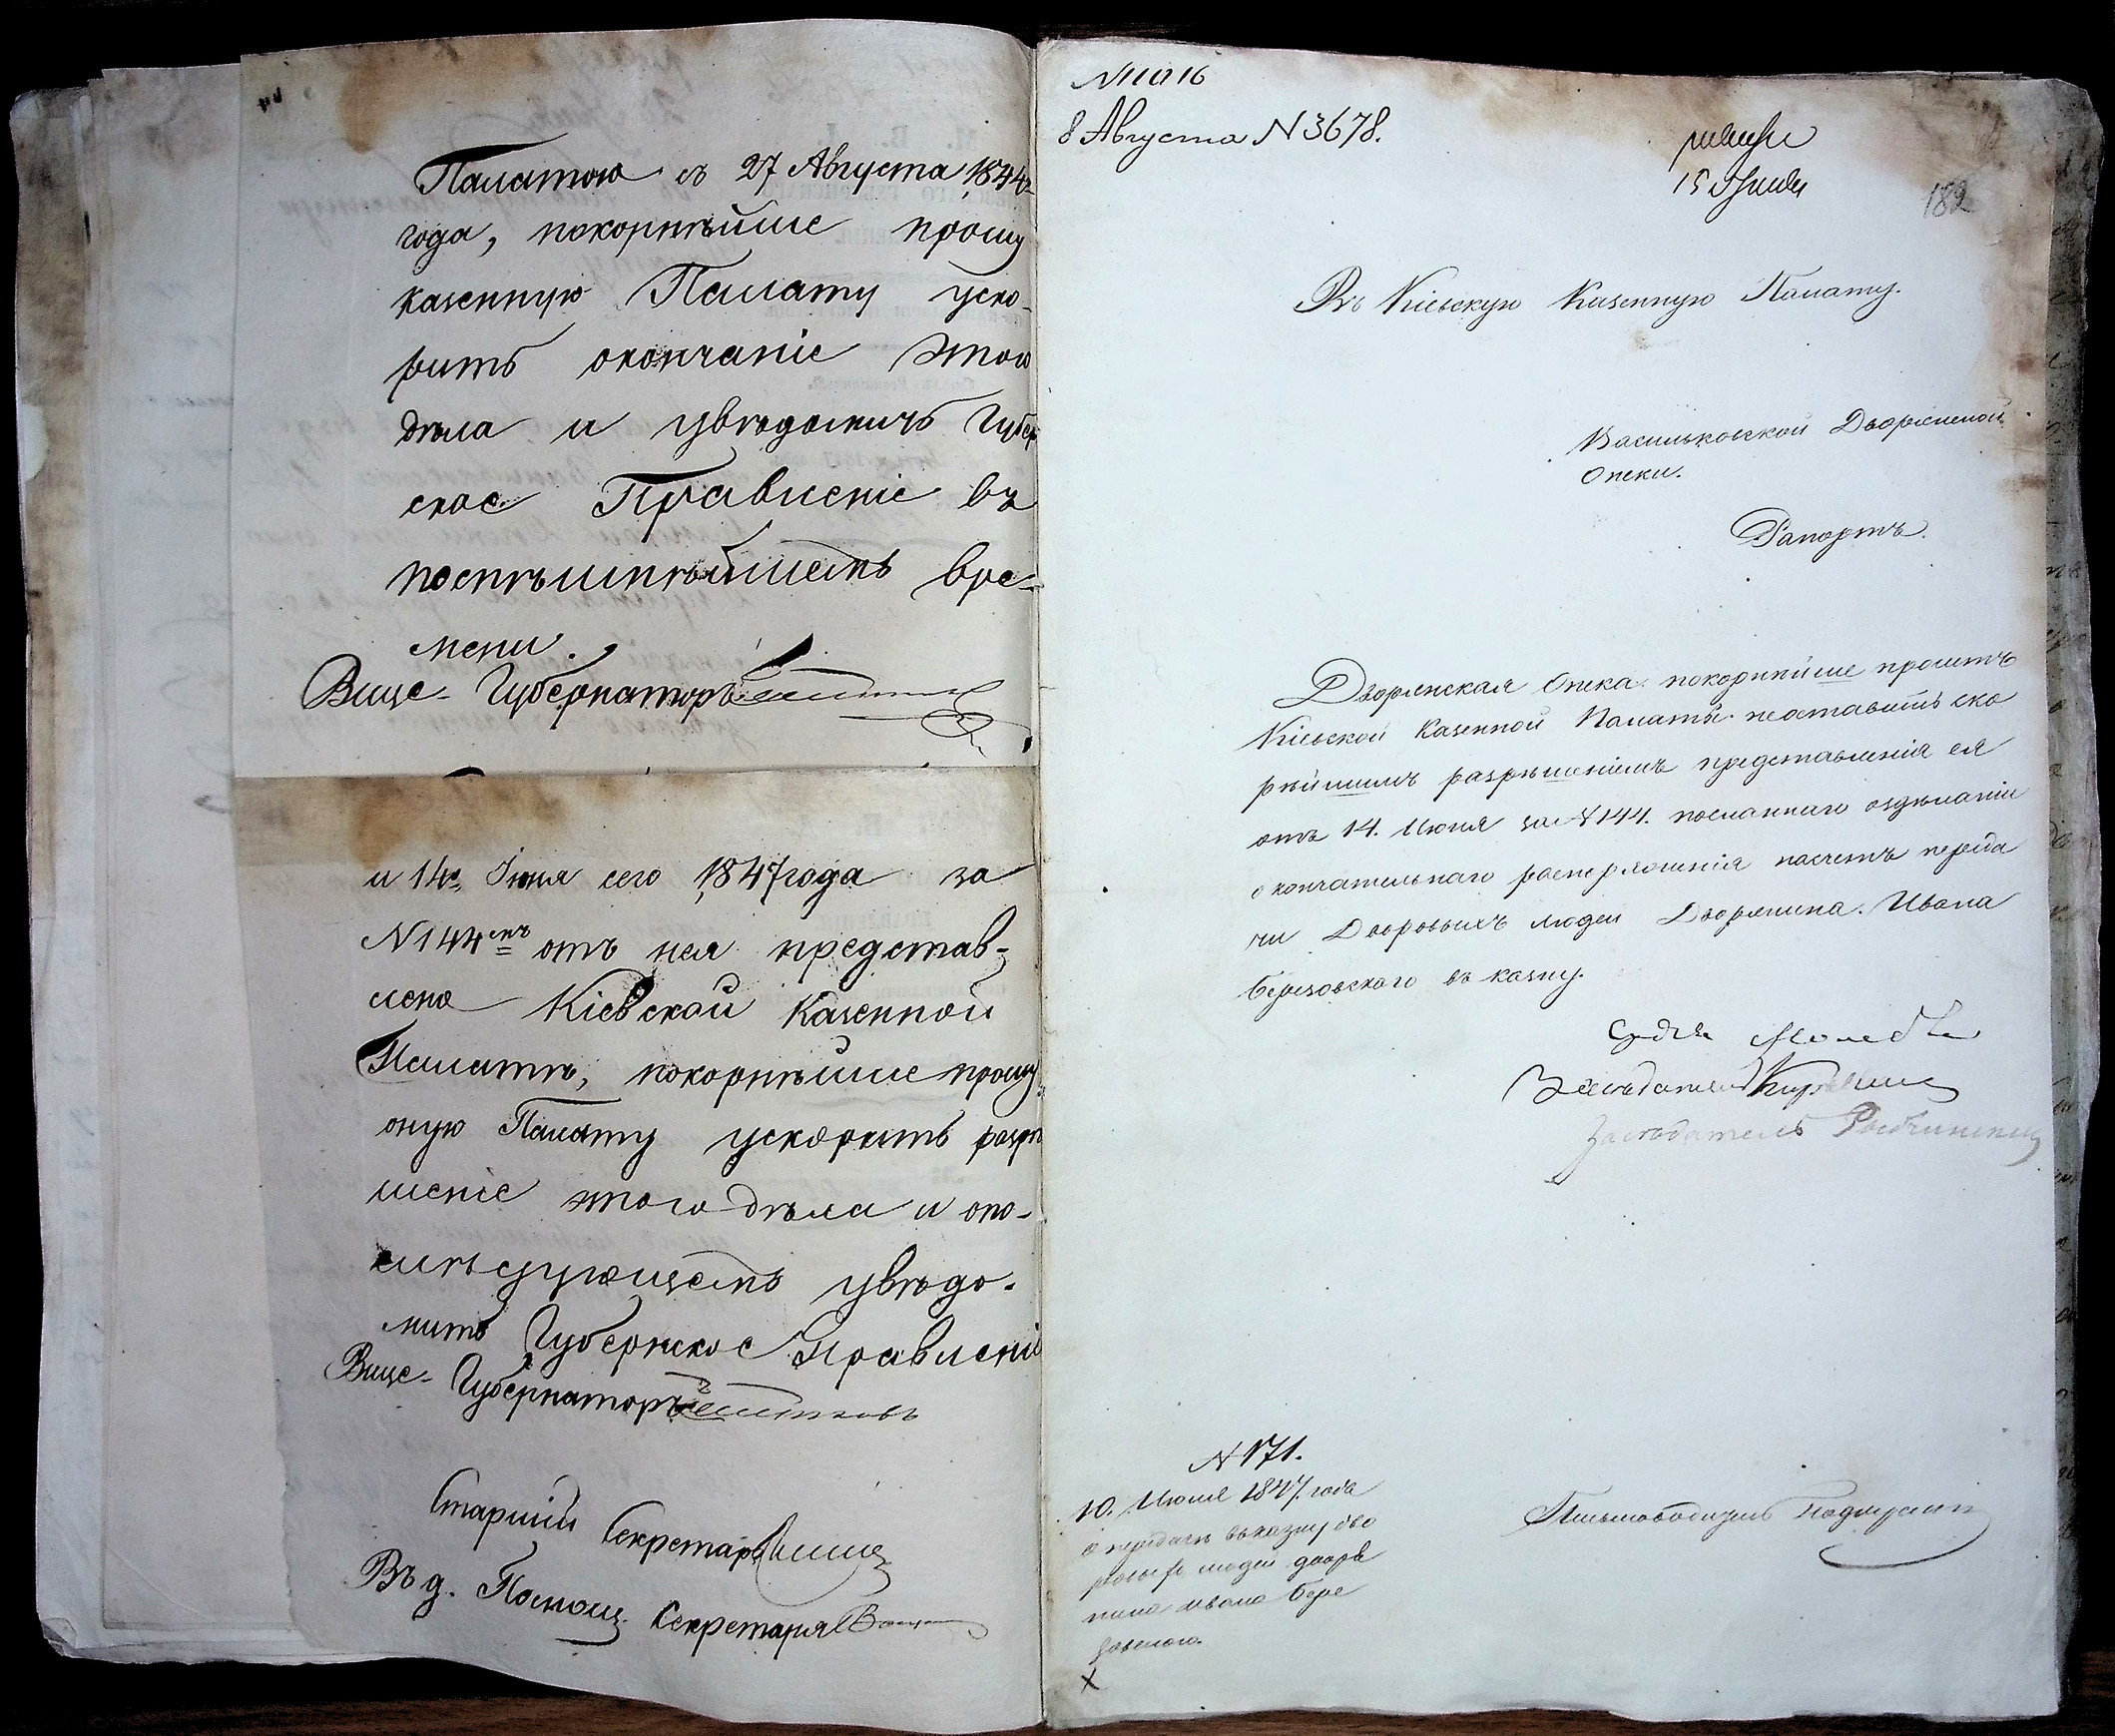 Палатою съ 27 Августа 1844
года, покорнѣйше прошу
казенную Палату уско-
рить окончаніе этого
дѣла и увѣдомить Губер
ское Правленіе въ
поспѣшнѣйшемъ вре-
мени.
Вице-Губернаторъ
и 14го Іюня сего 1847 года за
N 144мъ отъ нея представ-
лено Кіевской Казенной
Палатѣ, покорнѣйше прошу
оную Палату ускорить разрѣ
шеніе этого дѣла и о по-
слѣдующемъ увѣдо-
мить Губернское Правленіе
Вице-Губернаторъ
Старшій Секретарь
Въ д. Помощ. Секретаря
N 11016
8 Августа N 3678.
182
Въ Кіевскую Казенную Палату.
Васильковской Дворянской
Опеки.
Рапортъ.
Дворянская Опека покорнѣйше проситъ
Кіевской Казенной Палаты неоставить ско
рѣйшимъ разрѣшеніемъ представленія ея
отъ 14. Июня за N 144. посланнаго оздѣланіи
окончательнаго распоряженія насчетъ переда
чи Дворовыхъ людей Дворянина Ивана
Березовскаго въ казну.
Судья
Засѣдатель
Засѣдатель
N 171.
10. Июля 1847. года
о передачѣ въ казну дво
ровыхъ людей дворя
нина Ивана Бере
зовского.
Письмоводитель